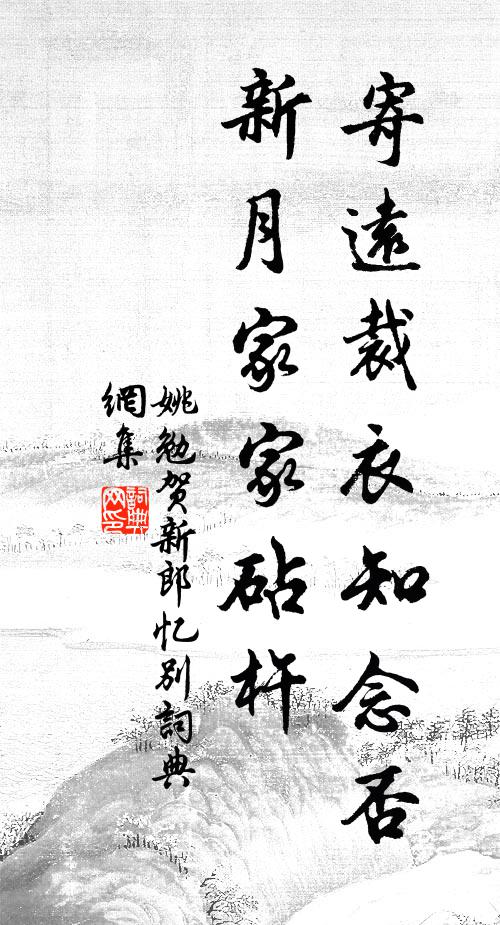 寄遠裁衣知念否
新月家家砧杵
姚勉賀新郎忆别詞典
網集
詞典
网印